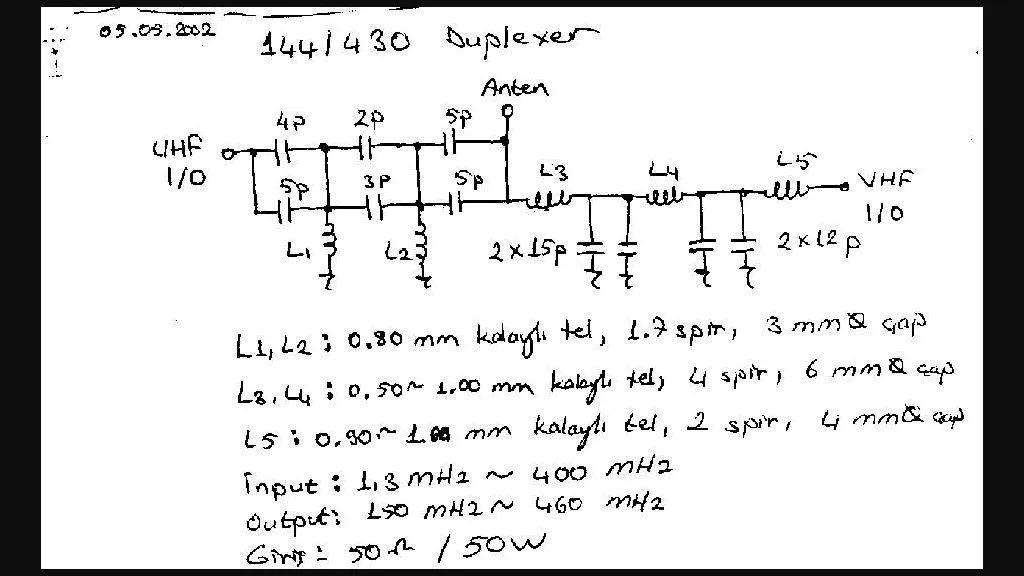 05.03.2002
144/430 Duplexer
Anten
4p 2p 5p
UHF I/O
5p 3p 5p
L3 L4 L5
VHF I/O
L1 L2
2x15p 2x12p
L1, L2 : 0.80 mm kalaylı tel, 1.7 spir, 3 mmØ çap
L3, L4 : 0.50~1.00 mm kalaylı tel, 4 spir, 6 mmØ çap
L5 : 0.90~1.00 mm kalaylı tel, 2 spir, 4 mmØ çap
İnput : 1,3 mHz ~ 400 mHz
Output: 150 mHz ~ 460 mHz
Giriş : 50 Ω / 50W